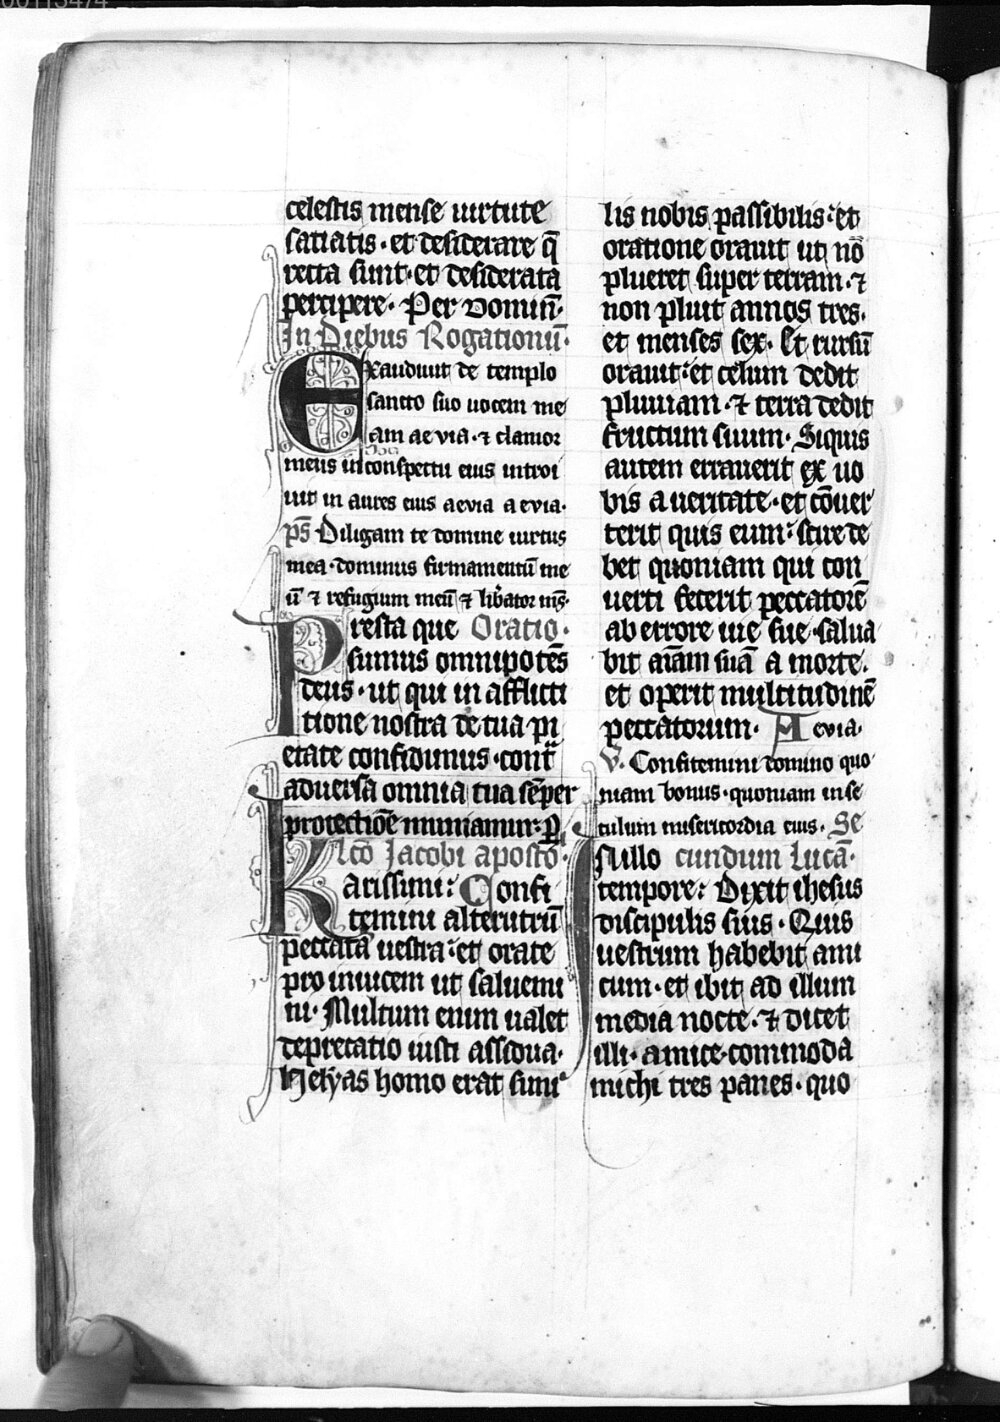 celestis mense uirtute
satiatis · et desiderare q̄
recta sunt · et desiderata
percipere · Per Dominū ·
In Diebus Rogationū ·
Exaudiuit de templo
sancto suo uocem me
am aevia · ⁊ clamor
meus in conspectu eius introi
uit in aures eius aevia aevia ·
ps̄ Diligam te domine uirtus
mea · dominus firmamentū me
ū ⁊ refugium meū ⁊ lib̄ator m̄s ·
Presta que Oratio ·
sumus omnipotēs
deus · ut qui in afflicti
tione nostra de tua pi
etate confidimus · cont̄
aduersa omnia tua sēper
protectiōe muniamur · P̱
Lc̄o Jacobi aposto ·
Karissimi : Confi
temini alterutrū
peccata uestra · et orate
pro inuicem ut saluemi
ni · Multum enim ualet
deprecatio iusti assidua ·
Helyas homo erat simi
lis nobis passibilis : et
oratione orauit ut nō
plueret super terram · ⁊
non pluit annos tres ·
et menses sex · Et rursū
orauit : et celum dedit
pluuiam · ⁊ terra dedit
fructum suum · Siquis
autem errauerit ex uo
bis a ueritate · et cōuer
terit quis eum : scire de
bet quoniam qui con
uerti fecerit peccatorē
ab errore uie sue · salua
bit aīam suā a morte ·
et operit multitudinē
peccatorum · Aevia ·
V̄ · Confitemini domino quo
niam bonus · quoniam in se
culum misericordia eius · Se
In illo cundum Lucā ·
tempore : Dixit ihesus
discipulis suis · Quis
uestrum habebit ami
cum · et ibit ad illum
media nocte · ⁊ dicet
illi · amice · commoda
michi tres panes · quo